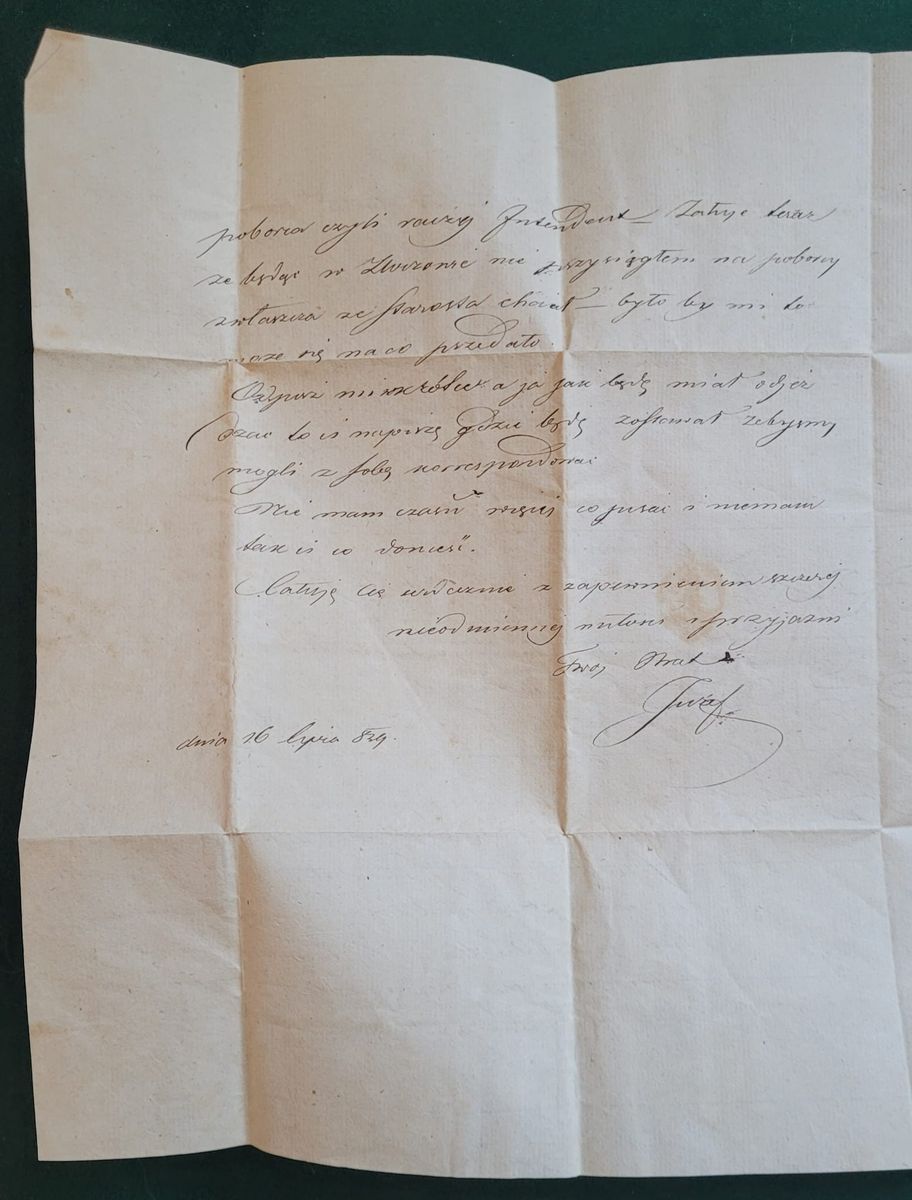 poborca czyli raczej Intendent – Załuje teraz
ze będąc w nie przysiągłem na poborcy
zwłaszcza ze Starosta chciał – było by mi to
moze się naco przydało.
Odpisz mi wkrótce a ja jak będę miał odjez
dzac to ci napiszę gdzie będę zostawał zebysmy
mogli z sobą korrespondowac
Nie mam czasu więcej co pisac i niemam
tak ci co doniesć.
Całuję Cię serdecznie z zapewnieniem szczerej
nieodmiennej miłosci i przyjazni
Twoj Brat
Józef
dnia 16 lipca 829.